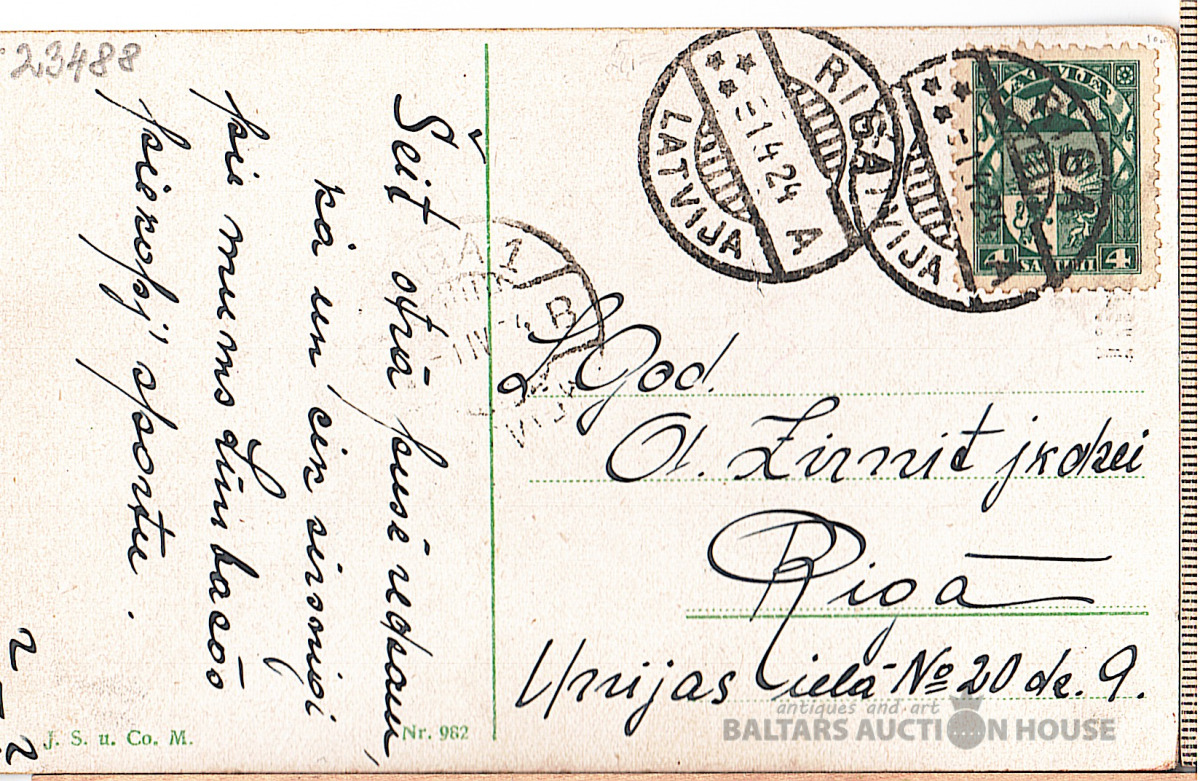 23488
Šeit otrā pusē redzam,
kā un cik sirsnīgi
pie mums Limbažos
piekopj sportu.
J. S. u. Co. M.
Nr. 982
RIGA
LATVIJA
-1 4 24
A
RIGA
LATVIJA
A
LATVIJA
4 SANTIMI 4
GA 1
B
L. God.
A. Zirnit jkdzei
Rigā
Unijas ielā No 20 dz. 9.
antiques and art
BALTARS AUCTION HOUSE